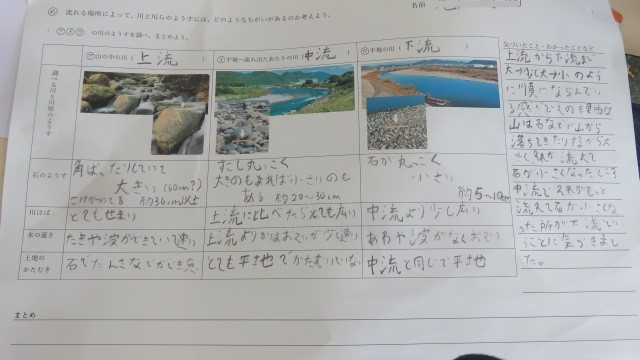 ㋱ 流れる場所によって、川と川らのようすには、どのようなちがいがあるのか考えよう。
名前
・㋐㋑㋒ の川のようすを調べ、まとめよう。
㋐山の中の川 ( 上流 )
㋑平地へ流れ出たあたりの川 ( 中流 )
㋒平地の川 ( 下流 )
調べる川と川原のようす
石のようす
角ばったりしていて
大きい (60cm?)
約30cm以上
すこし丸っこく
大きのもあれば小さいのも
ある 約20〜30cm
石が丸っこく
小さい
約5〜10cm
川はば
とてもせまい
上流に比べたらとても広い
中流より少し広い
水の速さ
たきや波ができていて速い
上流よりかはおそいが少し速い
あわや波がなくおそい
土地のかたむき
とても平地でかたむいていない
中流と同じで平地
気づいたこと・わかったことなど
上流から下流まで
大→少し大→小のよう
に順にならんでい
山はるなどに山から
落ちてきたりするから大
きくそれが流れて
石が小さくなったりして
中流でそれがもっと
流れて石が小さくな
った所が下流という
ことに気づきまし
た。
まとめ